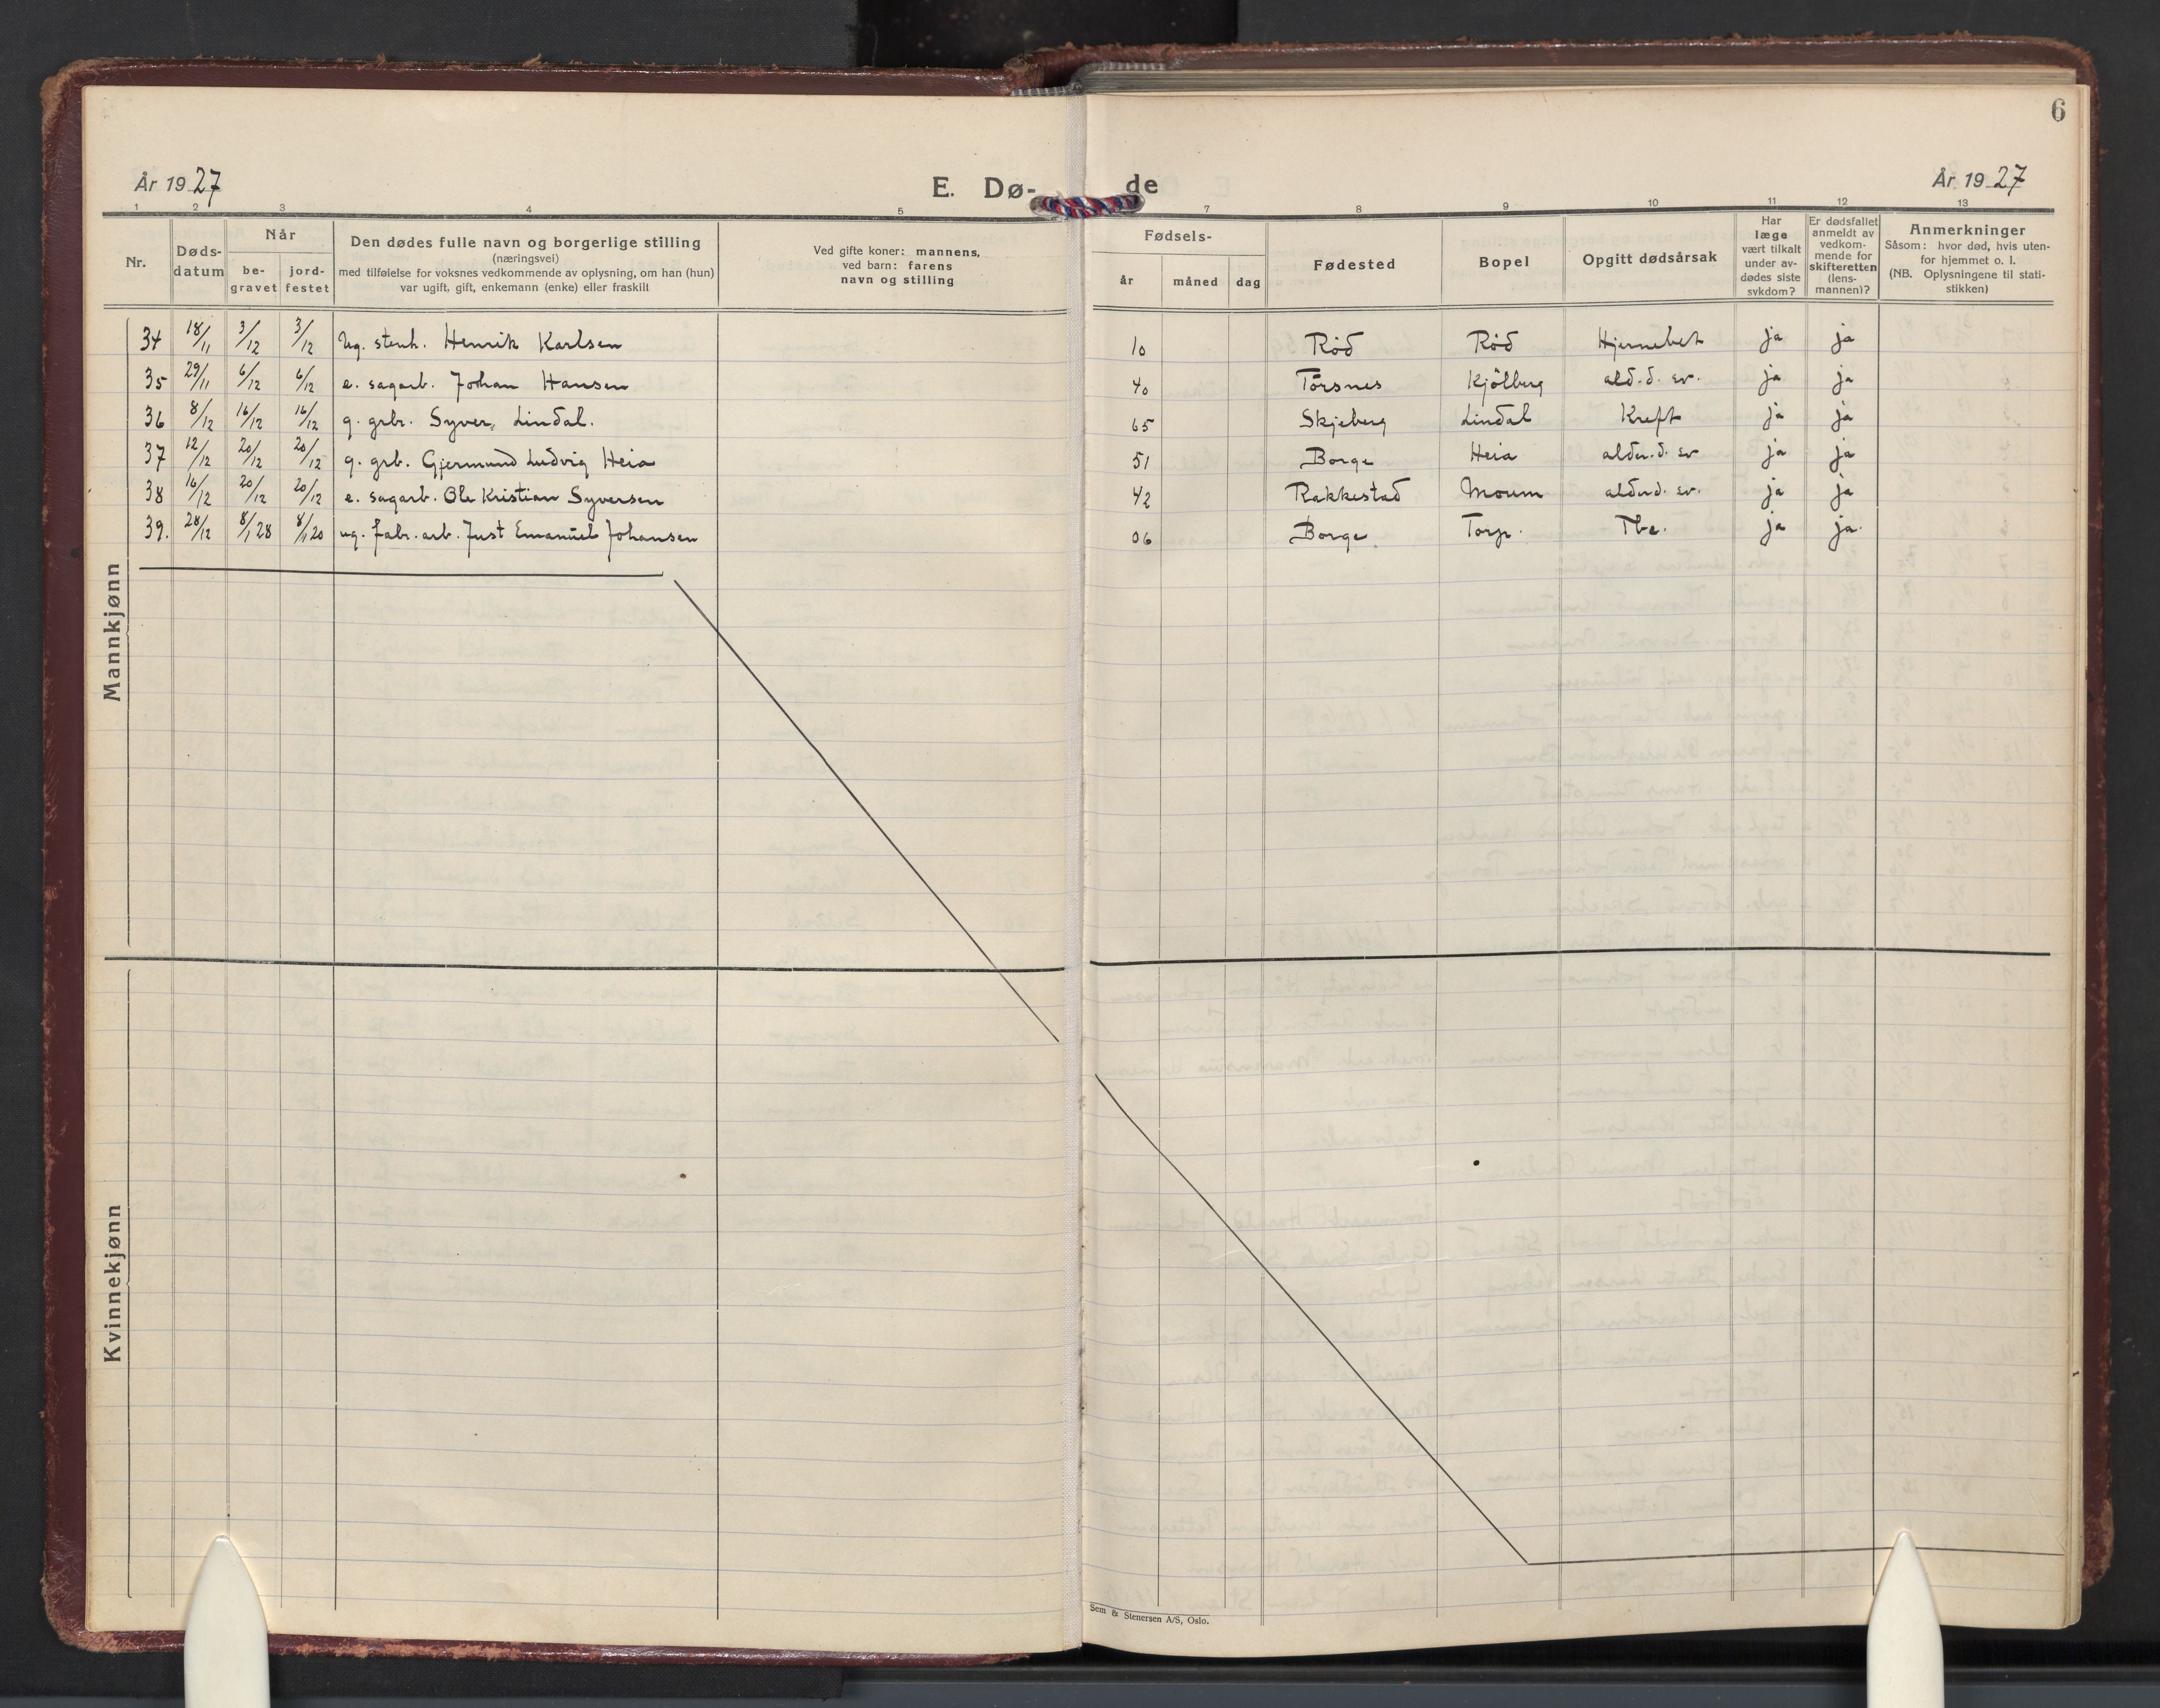 6
År 1927
E. Dø-
de
År 1927
1 2 3 4 5 7 8 9 10 11 12 13
Nr.
Døds-
datum
Når
be-
gravet
jord-
festet
Den dødes fulle navn og borgerlige stilling
(næringsvei)
med tilføielse for voksnes vedkommende av oplysning, om han (hun)
var ugift, gift, enkemann (enke) eller fraskilt
Ved gifte koner: mannens,
ved barn: farens
navn og stilling
Fødsels-
år måned dag
Fødested
Bopel
Opgitt dødsårsak
Har
læge
vært tilkalt
under av-
dødes siste
sykdom?
Er dødsfallet
anmeldt av
vedkom-
mende for
skifteretten
(lens-
mannen)?
Anmerkninger
Såsom: hvor død, hvis uten-
for hjemmet o. l.
(NB. Oplysningene til stati-
stikken)
34 18/11 3/12 3/12 Ug. stenh. Henrik Karlsen 10 Rød Rød Hjernebet ja ja
35 29/11 6/12 6/12 e. sagarb. Johan Hansen 40 Torsnes Kjølberg ald.d. sv. ja ja
36 8/12 16/12 16/12 g. grbr. Syver Lindal. 65 Skjeberg Lindal Kreft ja ja
37 12/12 20/12 20/12 g. grb. Gjermund Ludvig Heia 51 Borge Heia alder.d. sv ja ja
38 16/12 20/12 20/12 e. sagarb. Ole Kristian Syversen 42 Rakkestad Moum alderd. sv. ja ja
39. 28/12 8/1 28 8/1 20 ug. fabr. arb. Just Emanuel Johansen 06 Borge Torp. Tbc. ja ja.
Mannkjønn
Kvinnekjønn
Sem & Stenersen A/S, Oslo.